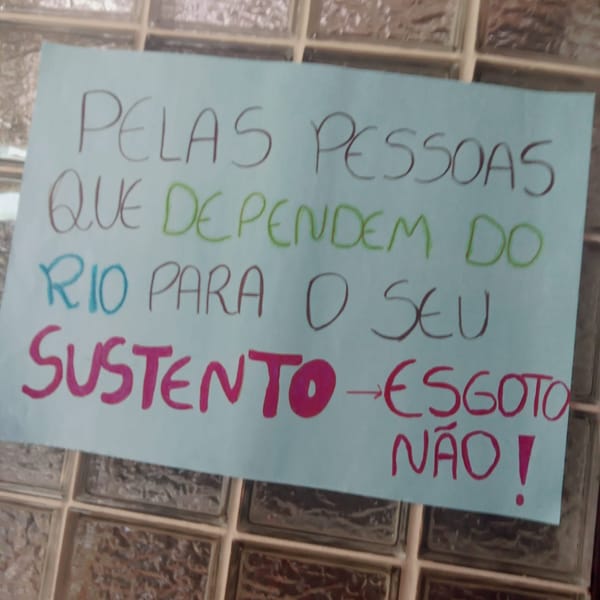 PELAS PESSOAS
QUE DEPENDEM DO
RIO PARA O SEU
SUSTENTO → ESGOTO
NÃO!